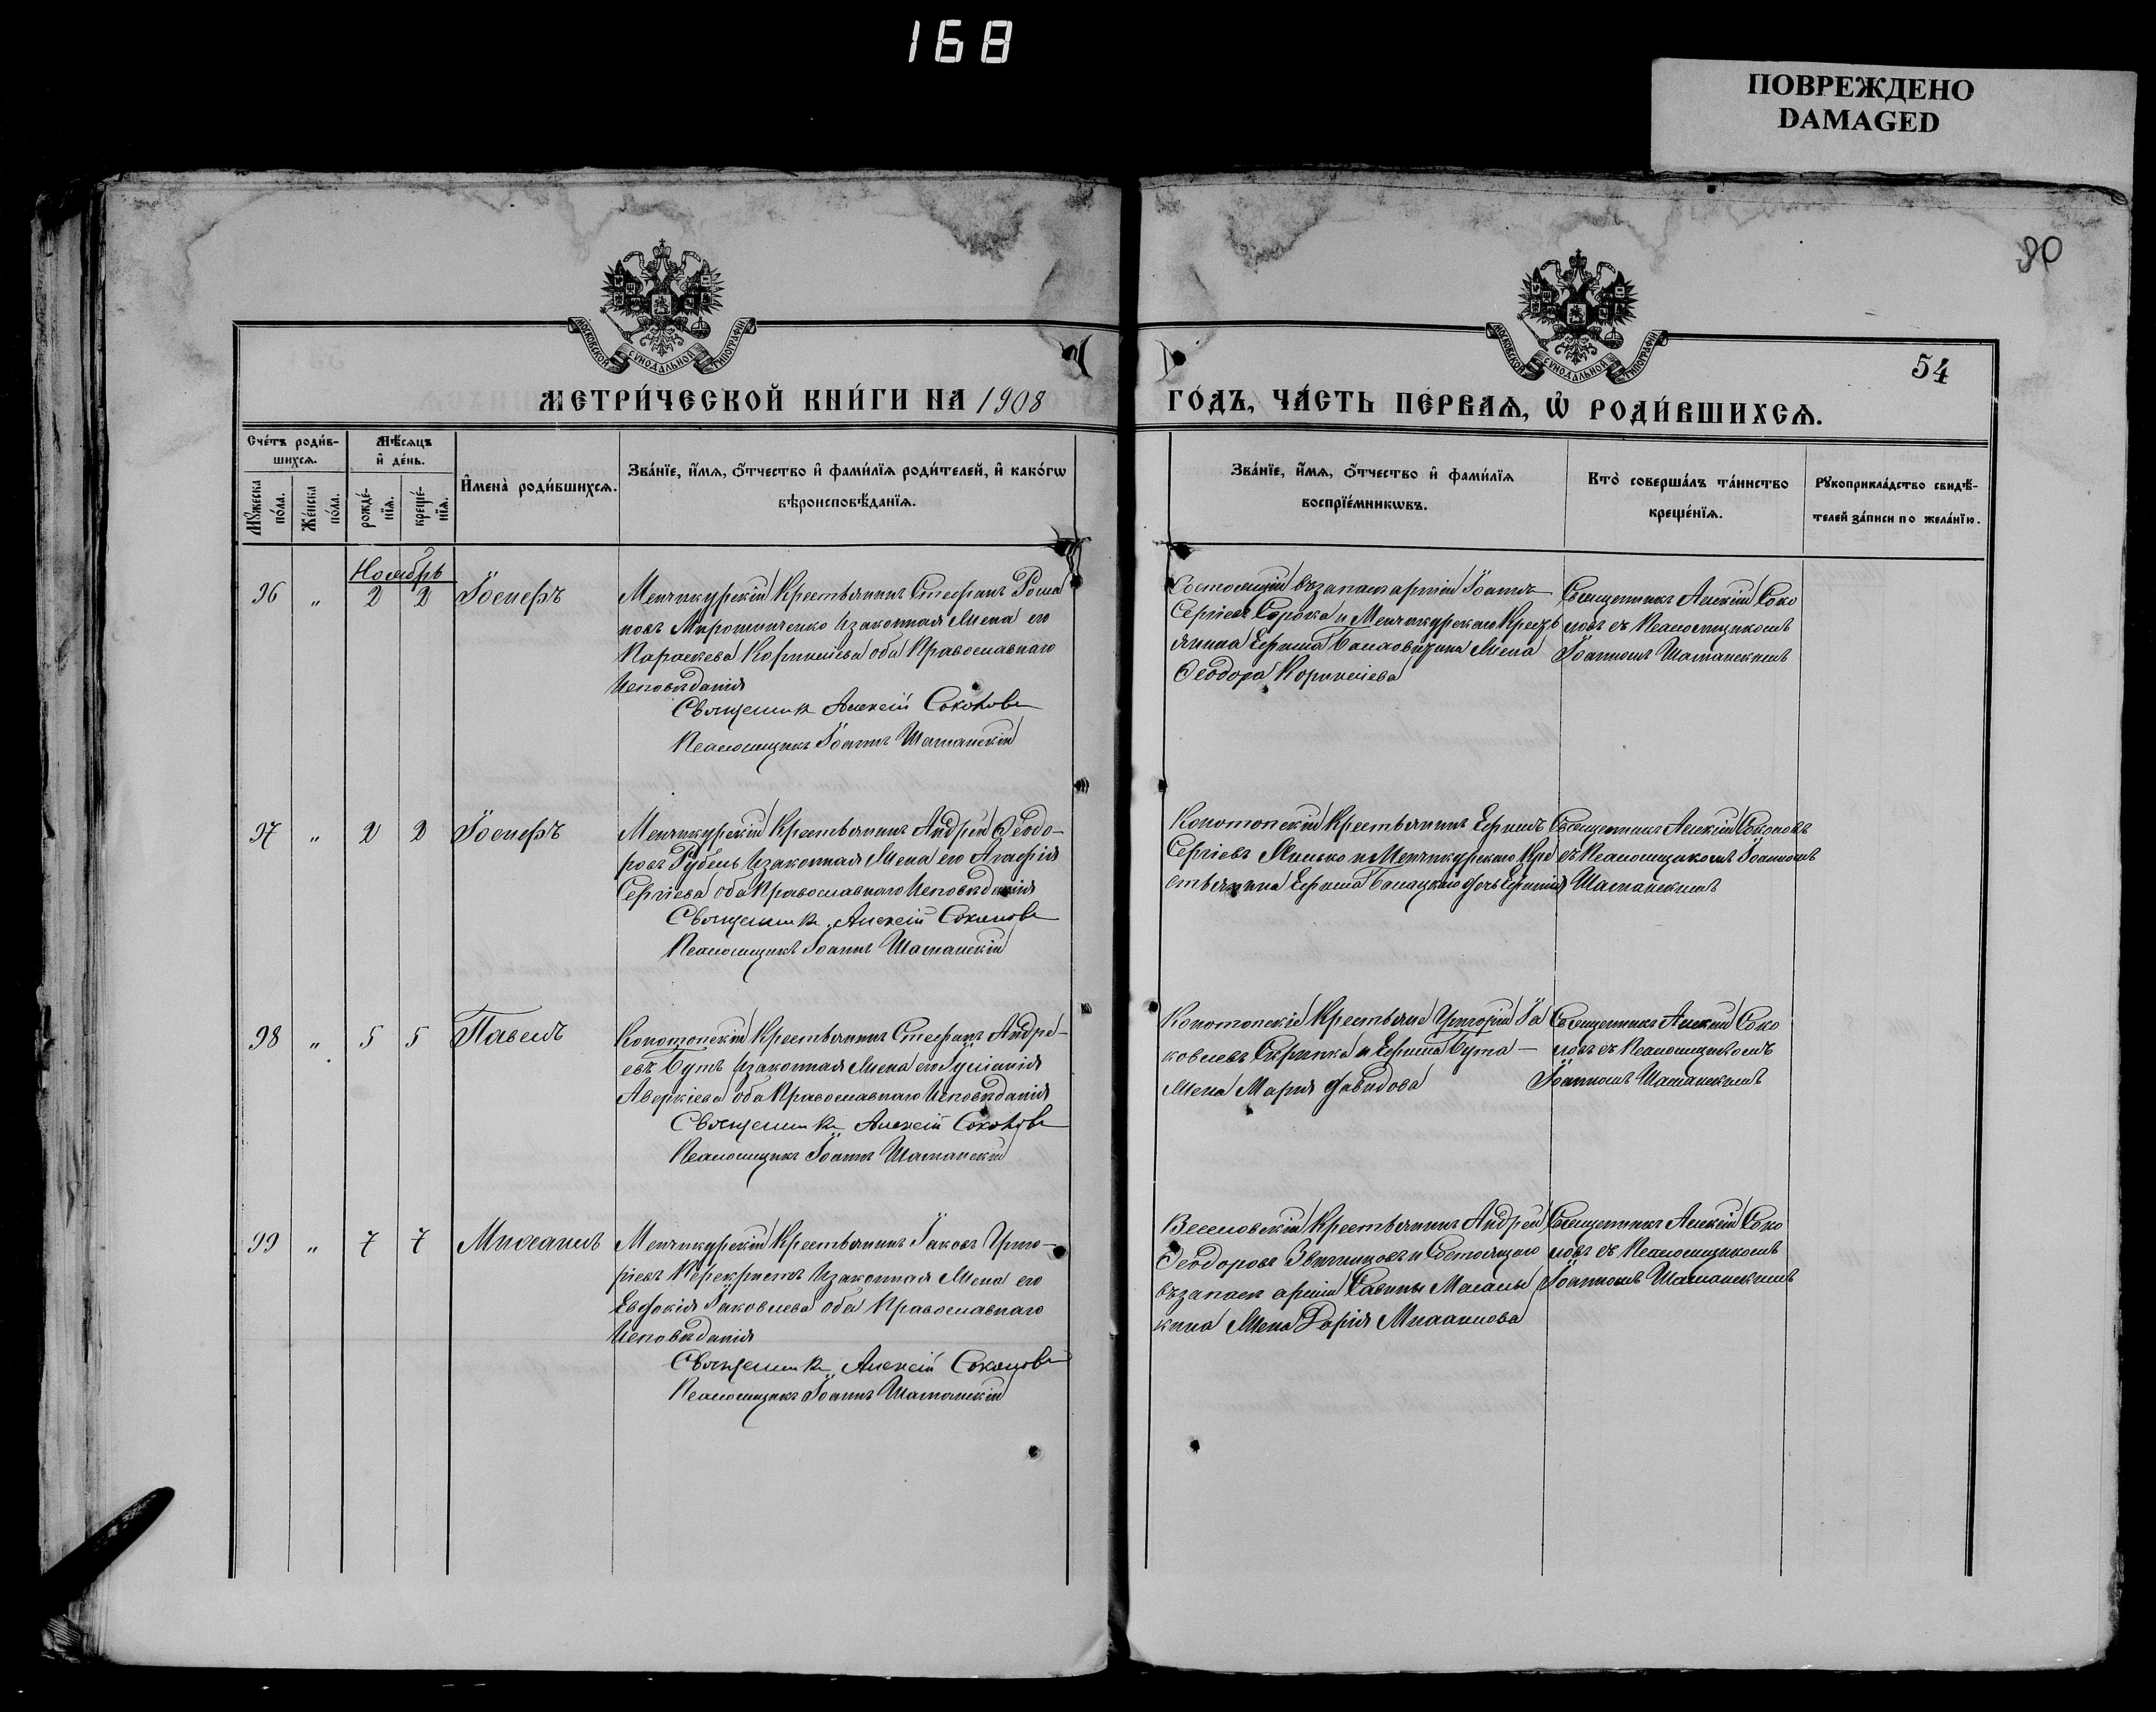 168
ПОВРЕЖДЕНО
DAMAGED
90
МОСКОВСКОЙ СѴНОДАЛЬНОЙ ТИПОГРАФІИ
МОСКОВСКОЙ СѴНОДАЛЬНОЙ ТИПОГРАФІИ
54
МЕТРИ́ЧЕСКОЙ КНИ́ГИ НА 1908
ГО́ДЪ, ЧА́СТЬ ПЕ́РВАѦ, Ѡ҆ РОДИ́ВШИХСѦ.
Сче́тъ роди́в-
шихсѧ.
Мꙋ́жеска по́ла.
Же́нска по́ла.
Мѣ́сѧцъ
и҆ де́нь.
рожде́-
нїѧ.
креще́-
нїѧ.
И҆мена̀ роди́вшихсѧ.
Зва́нїе, и҆́мѧ, ѻ҆́тчество и҆ фами́лїѧ роди́телей, и҆ како́гѡ
вѣроисповѣ́данїѧ.
Зва́нїе, и҆́мѧ, ѻ҆́тчество и҆ фами́лїѧ
воспрїе́мникѡвъ.
Кто̀ соверша́лъ та́инство
креще́нїѧ.
Рꙋкоприкла́дство свидѣ́-
телей за́писи по жела́нїю.
Ноябрь
96 " 2 2 Іосифъ
Менчикурскій Крестьянинъ Стефанъ Рома
новъ Мирошниченко и законная жена его
Параскева Корнилiева оба Православнаго
Исповѣданія
Священникъ Алексій Соколовъ
Псаломщикъ Іоаннъ Шаманскій
Состоящій въ запасѣ арміи Іоаннъ
Сергіевъ Сорока и Менчикурскаго Кресть
янина Ефима жена
Ѳеодора Корнилiева
Священникъ Алексій Соко
ловъ съ Псаломщикомъ
Іоанномъ Шаманскимъ
97 " 2 2 Іосифъ
Менчикурскій Крестьянинъ Андрей Ѳеодо-
ровъ Рубель и законная жена его Агафія
Сергіева оба Православнаго Исповѣданія
Священникъ Алексій Соколовъ
Псаломщикъ Іоаннъ Шаманскій
Конотопскій Крестьянинъ Ефимъ
Сергіевъ Минько и Менчикурскаго Кре
стьянина Ефима дочь
Священникъ Алексій Соколовъ
съ Псаломщикомъ Іоанномъ
Шаманскимъ
98 " 5 5 Павелъ
Конотопскій Крестьянинъ Стефанъ Андре-
евъ Бутъ и законная жена его Іуліанія
Аверкіева оба Православнаго Исповѣданія
Священникъ Алексій Соколовъ
Псаломщикъ Іоаннъ Шаманскій
Конотопскіе Крестьяне Григорій Іа
ковлевъ Скрипка и Ефима Бута -
жена Марія Давидова
Священникъ Алексій Соко
ловъ съ Псаломщикомъ
Іоанномъ Шаманскимъ
99 " 7 7 Михаилъ
Менчикурскій Крестьянинъ Іаковъ Григо-
ріевъ Перекрестъ и законная жена его
Евдокія Іаковлева оба Православнаго
Исповѣданія
Священникъ Алексій Соколовъ
Псаломщикъ Іоаннъ Шаманскій
Веселовскій Крестьянинъ Андрей
Ѳеодоровъ и Состоящаго
въ запасѣ арміи Саввы
жена Дарія Михаилова
Священникъ Алексій Соко
ловъ съ Псаломщикомъ
Іоанномъ Шаманскимъ